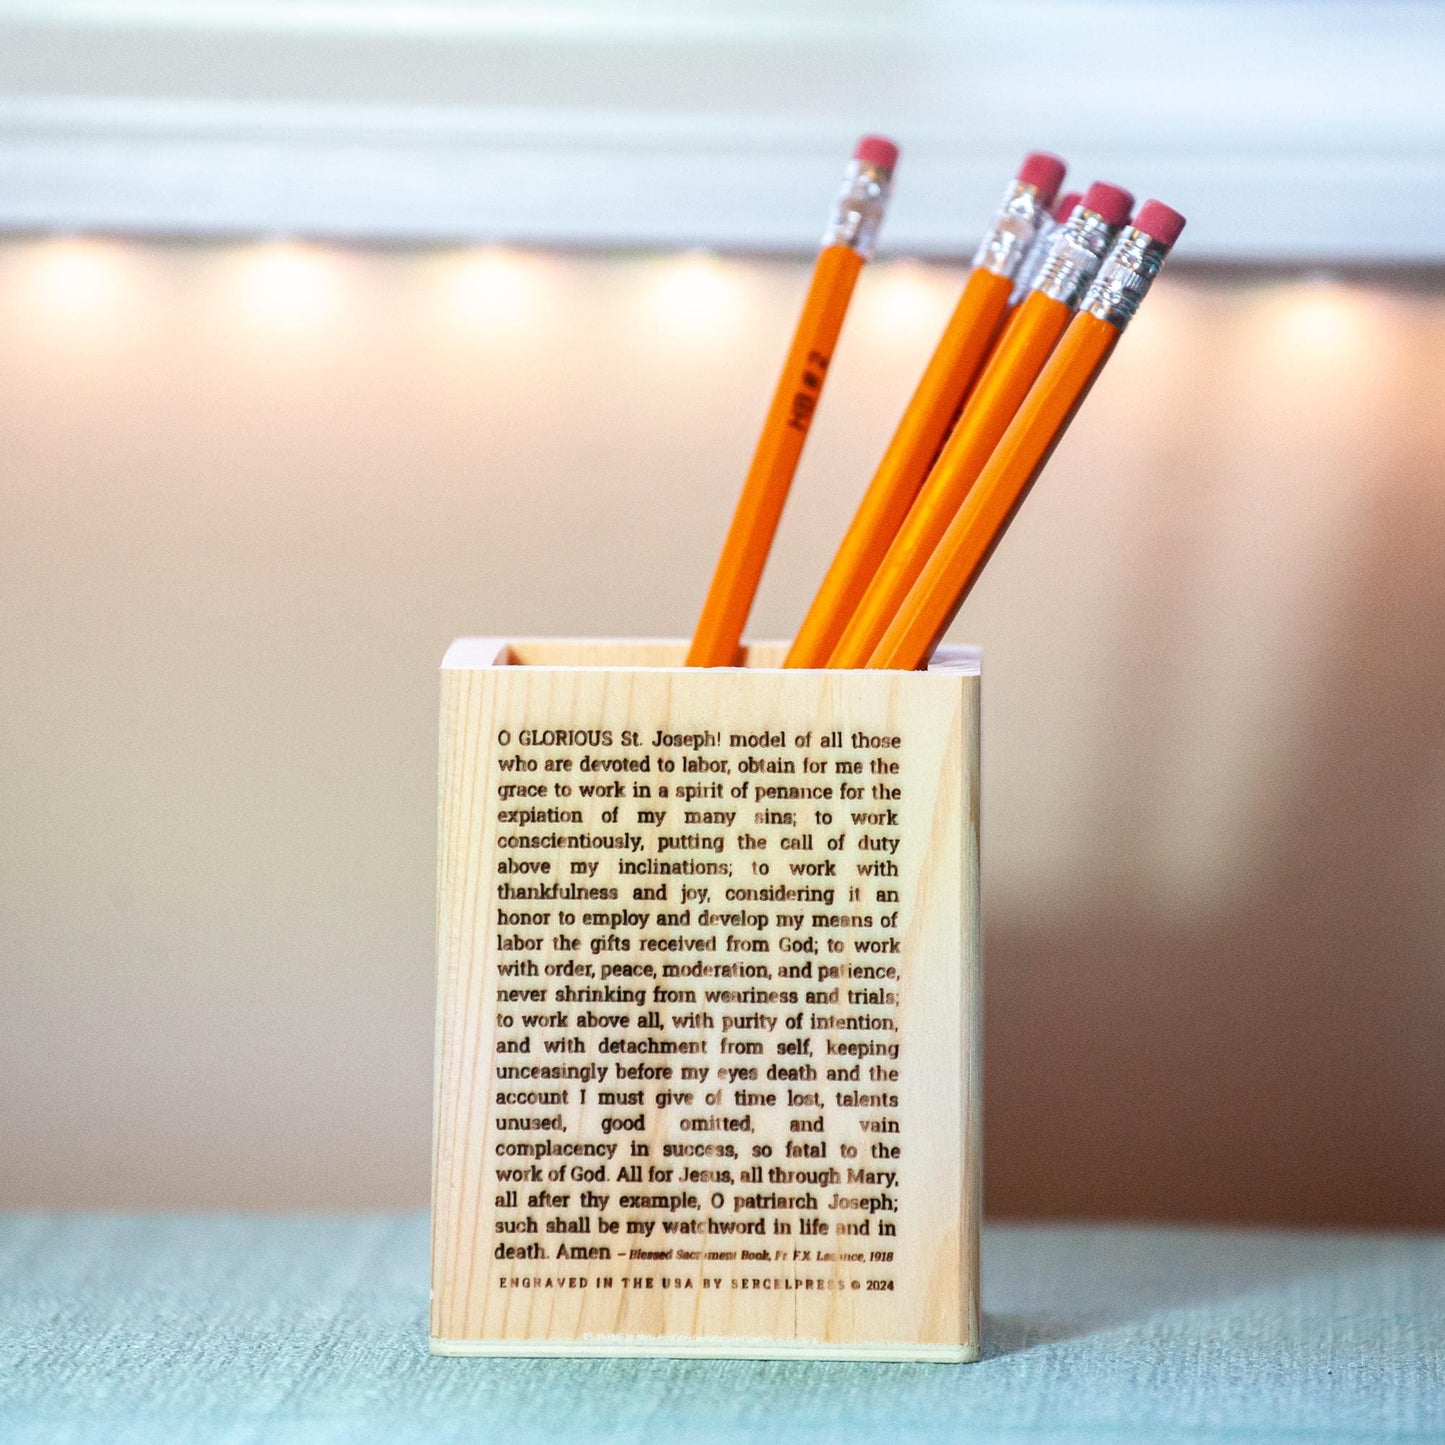 HB # 2
O GLORIOUS St. Joseph! model of all those
who are devoted to labor, obtain for me the
grace to work in a spirit of penance for the
expiation of my many sins; to work
conscientiously, putting the call of duty
above my inclinations; to work with
thankfulness and joy, considering it an
honor to employ and develop my means of
labor the gifts received from God; to work
with order, peace, moderation, and patience,
never shrinking from weariness and trials;
to work above all, with purity of intention,
and with detachment from self, keeping
unceasingly before my eyes death and the
account I must give of time lost, talents
unused, good omitted, and vain
complacency in success, so fatal to the
work of God. All for Jesus, all through Mary,
all after thy example, O patriarch Joseph;
such shall be my watchword in life and in
death. Amen – Blessed Sacrament Book, Fr. F.X. Lasance, 1918
ENGRAVED IN THE USA BY SERCELPRESS © 2024